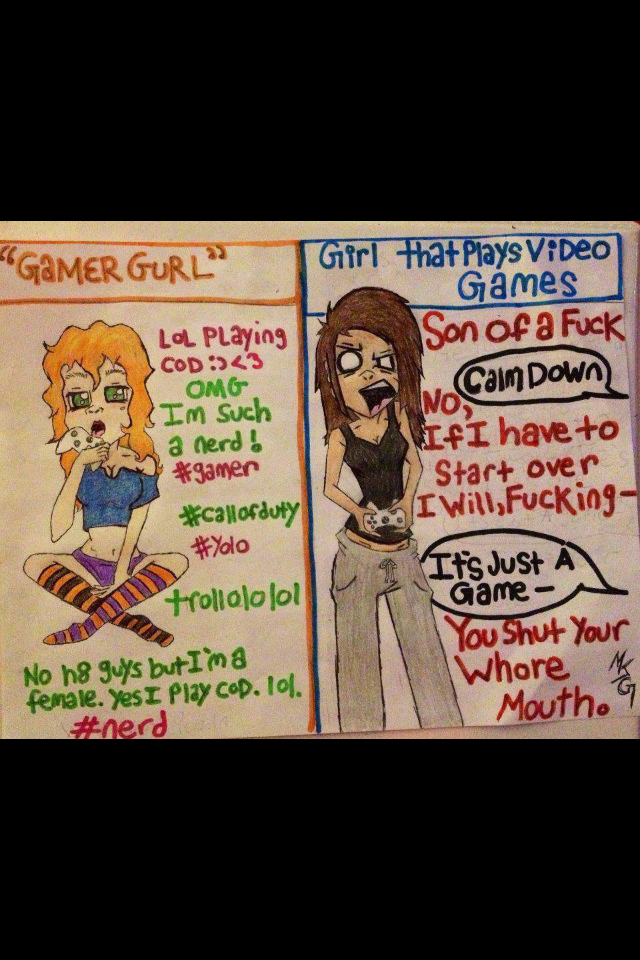 "GAMER GURL"
LOL PLAYING
COD :) <3
OMG
Im such
a nerd!
#gamer
#callofduty
#Yolo
trollololol
No h8 guys but I'm a
female. Yes I Play COD. lol.
#nerd
Girl that Plays Video
Games
Son of a Fuck
Calm Down
No,
If I have to
Start over
I Will, Fucking-
It's Just A
Game-
You Shut Your
Whore
Mouth.
MKG